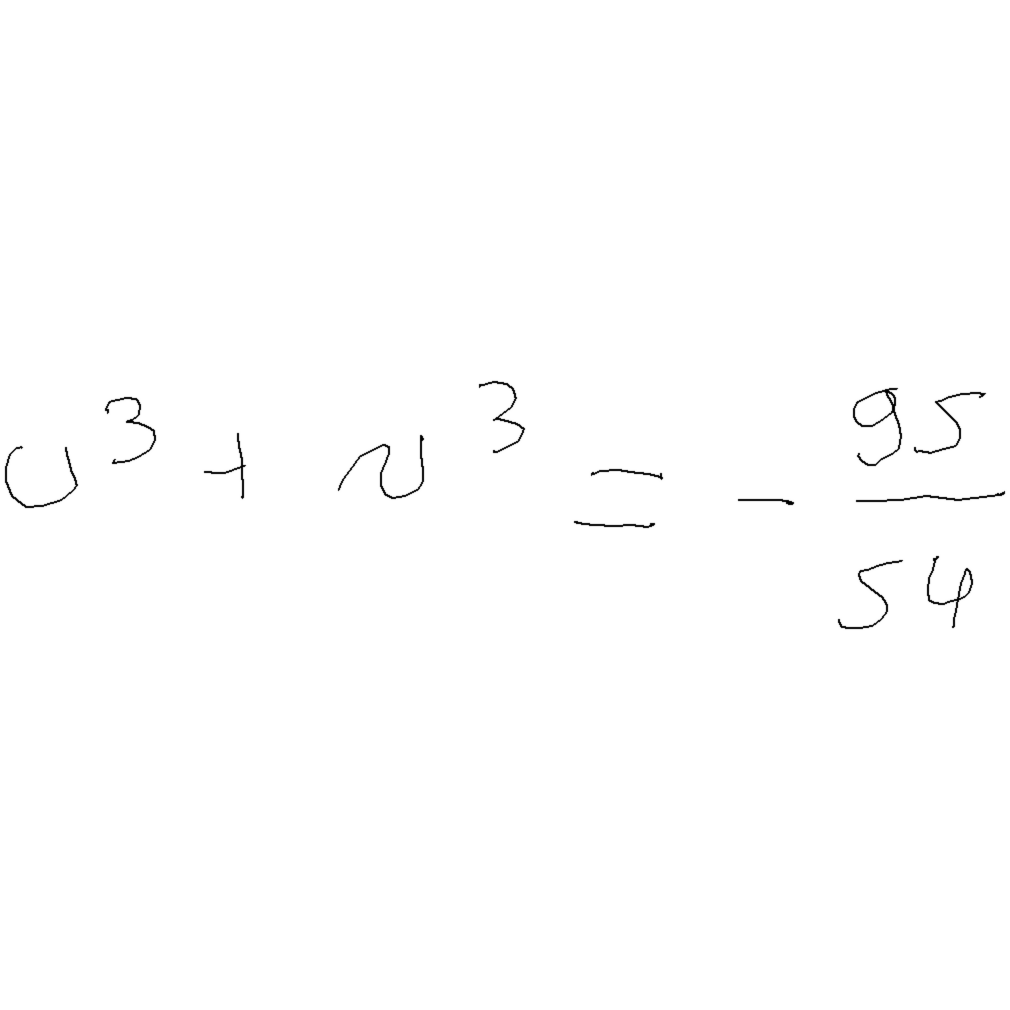 u³ + v³ = - 95/54